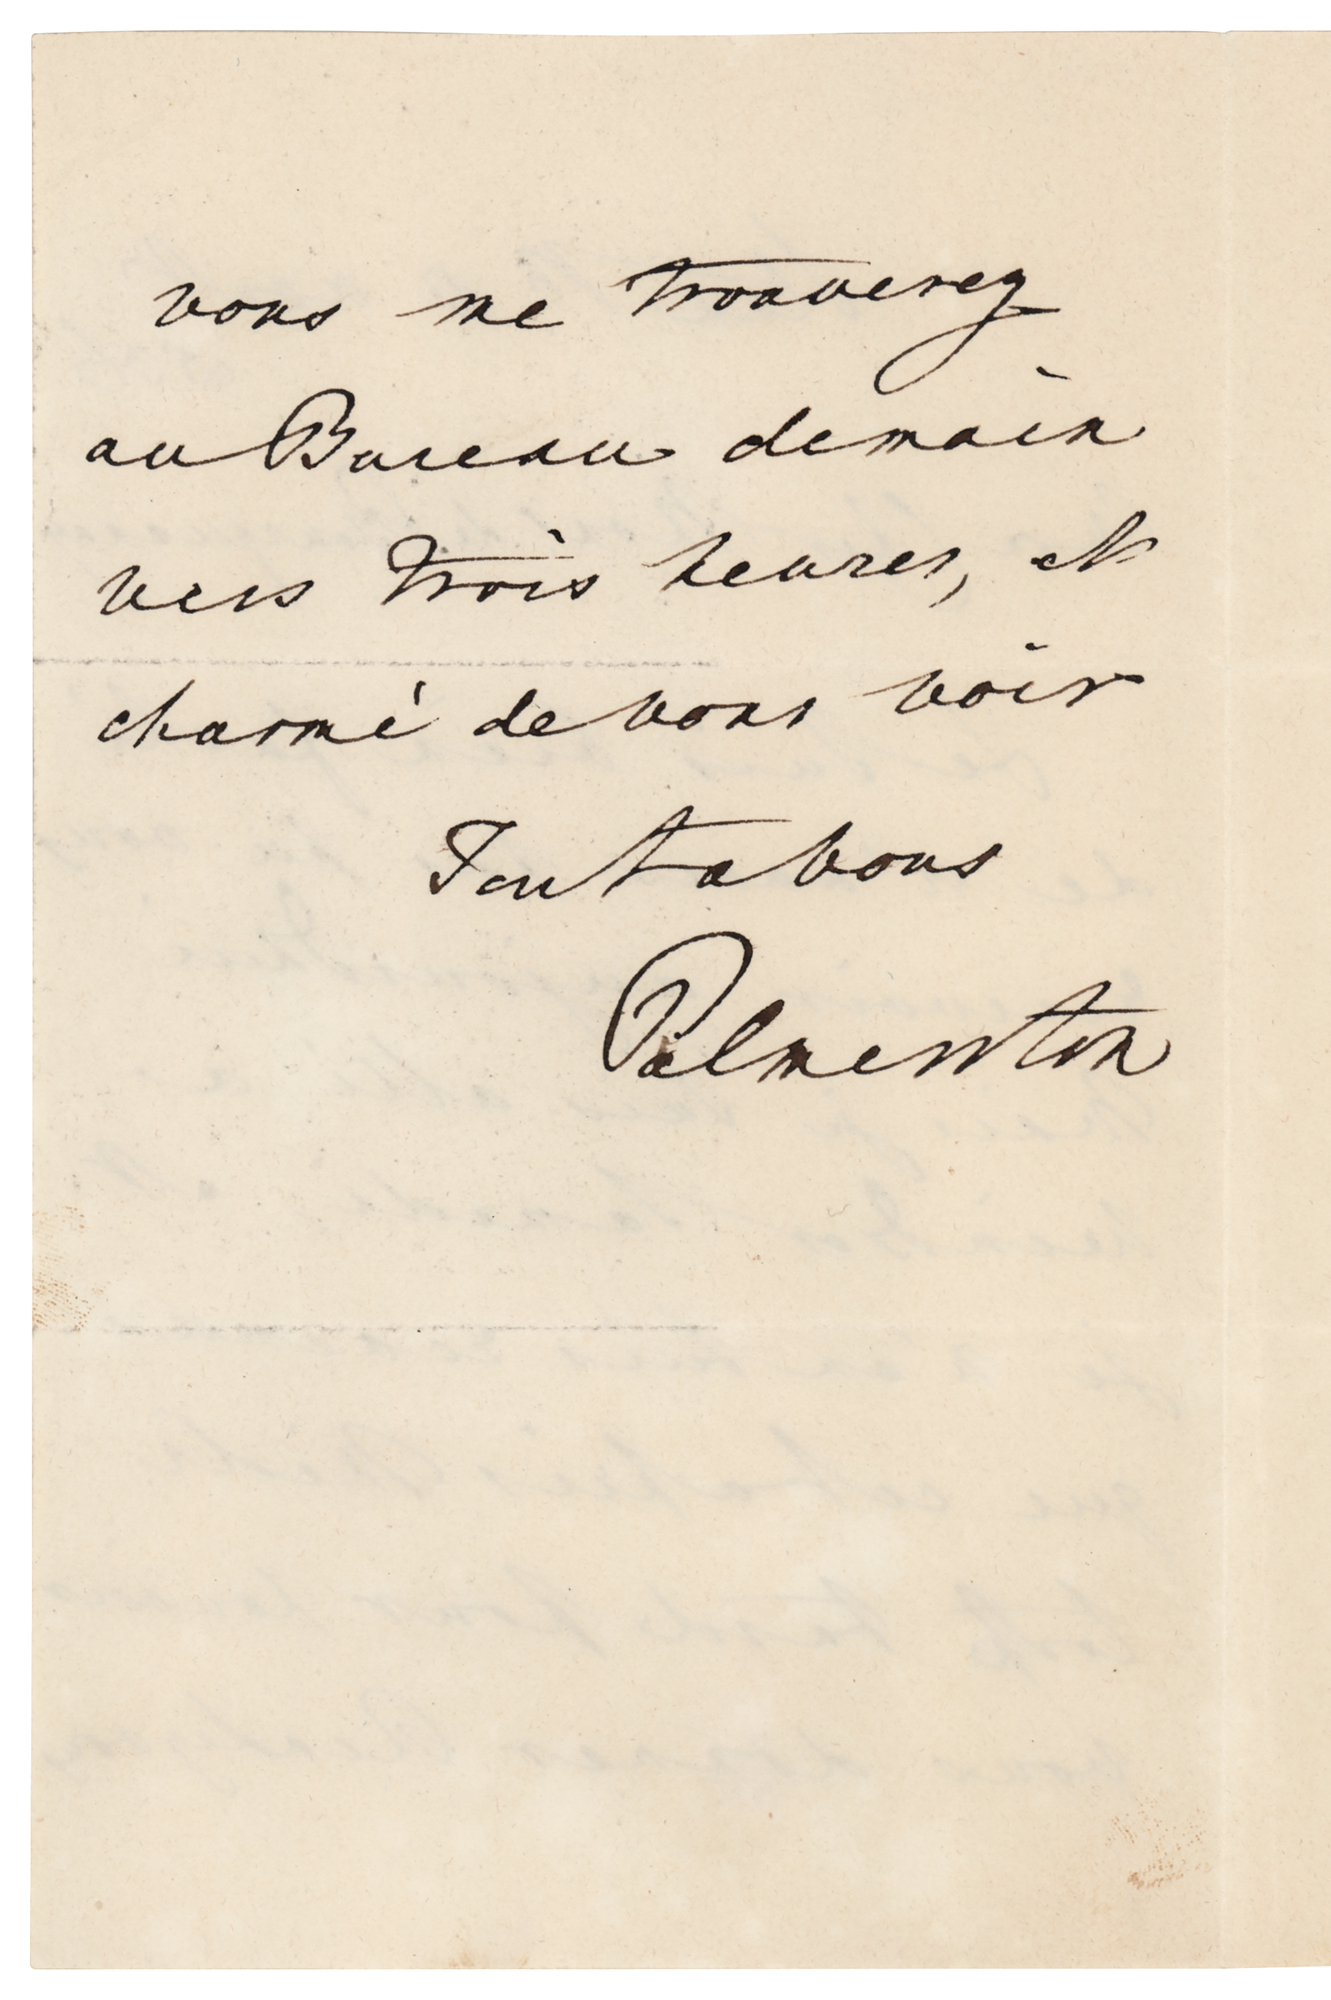 vous me trouverez
au Bureau demain
vers trois heures, et
charmé de vous voir
Tout a vous
Palmerston